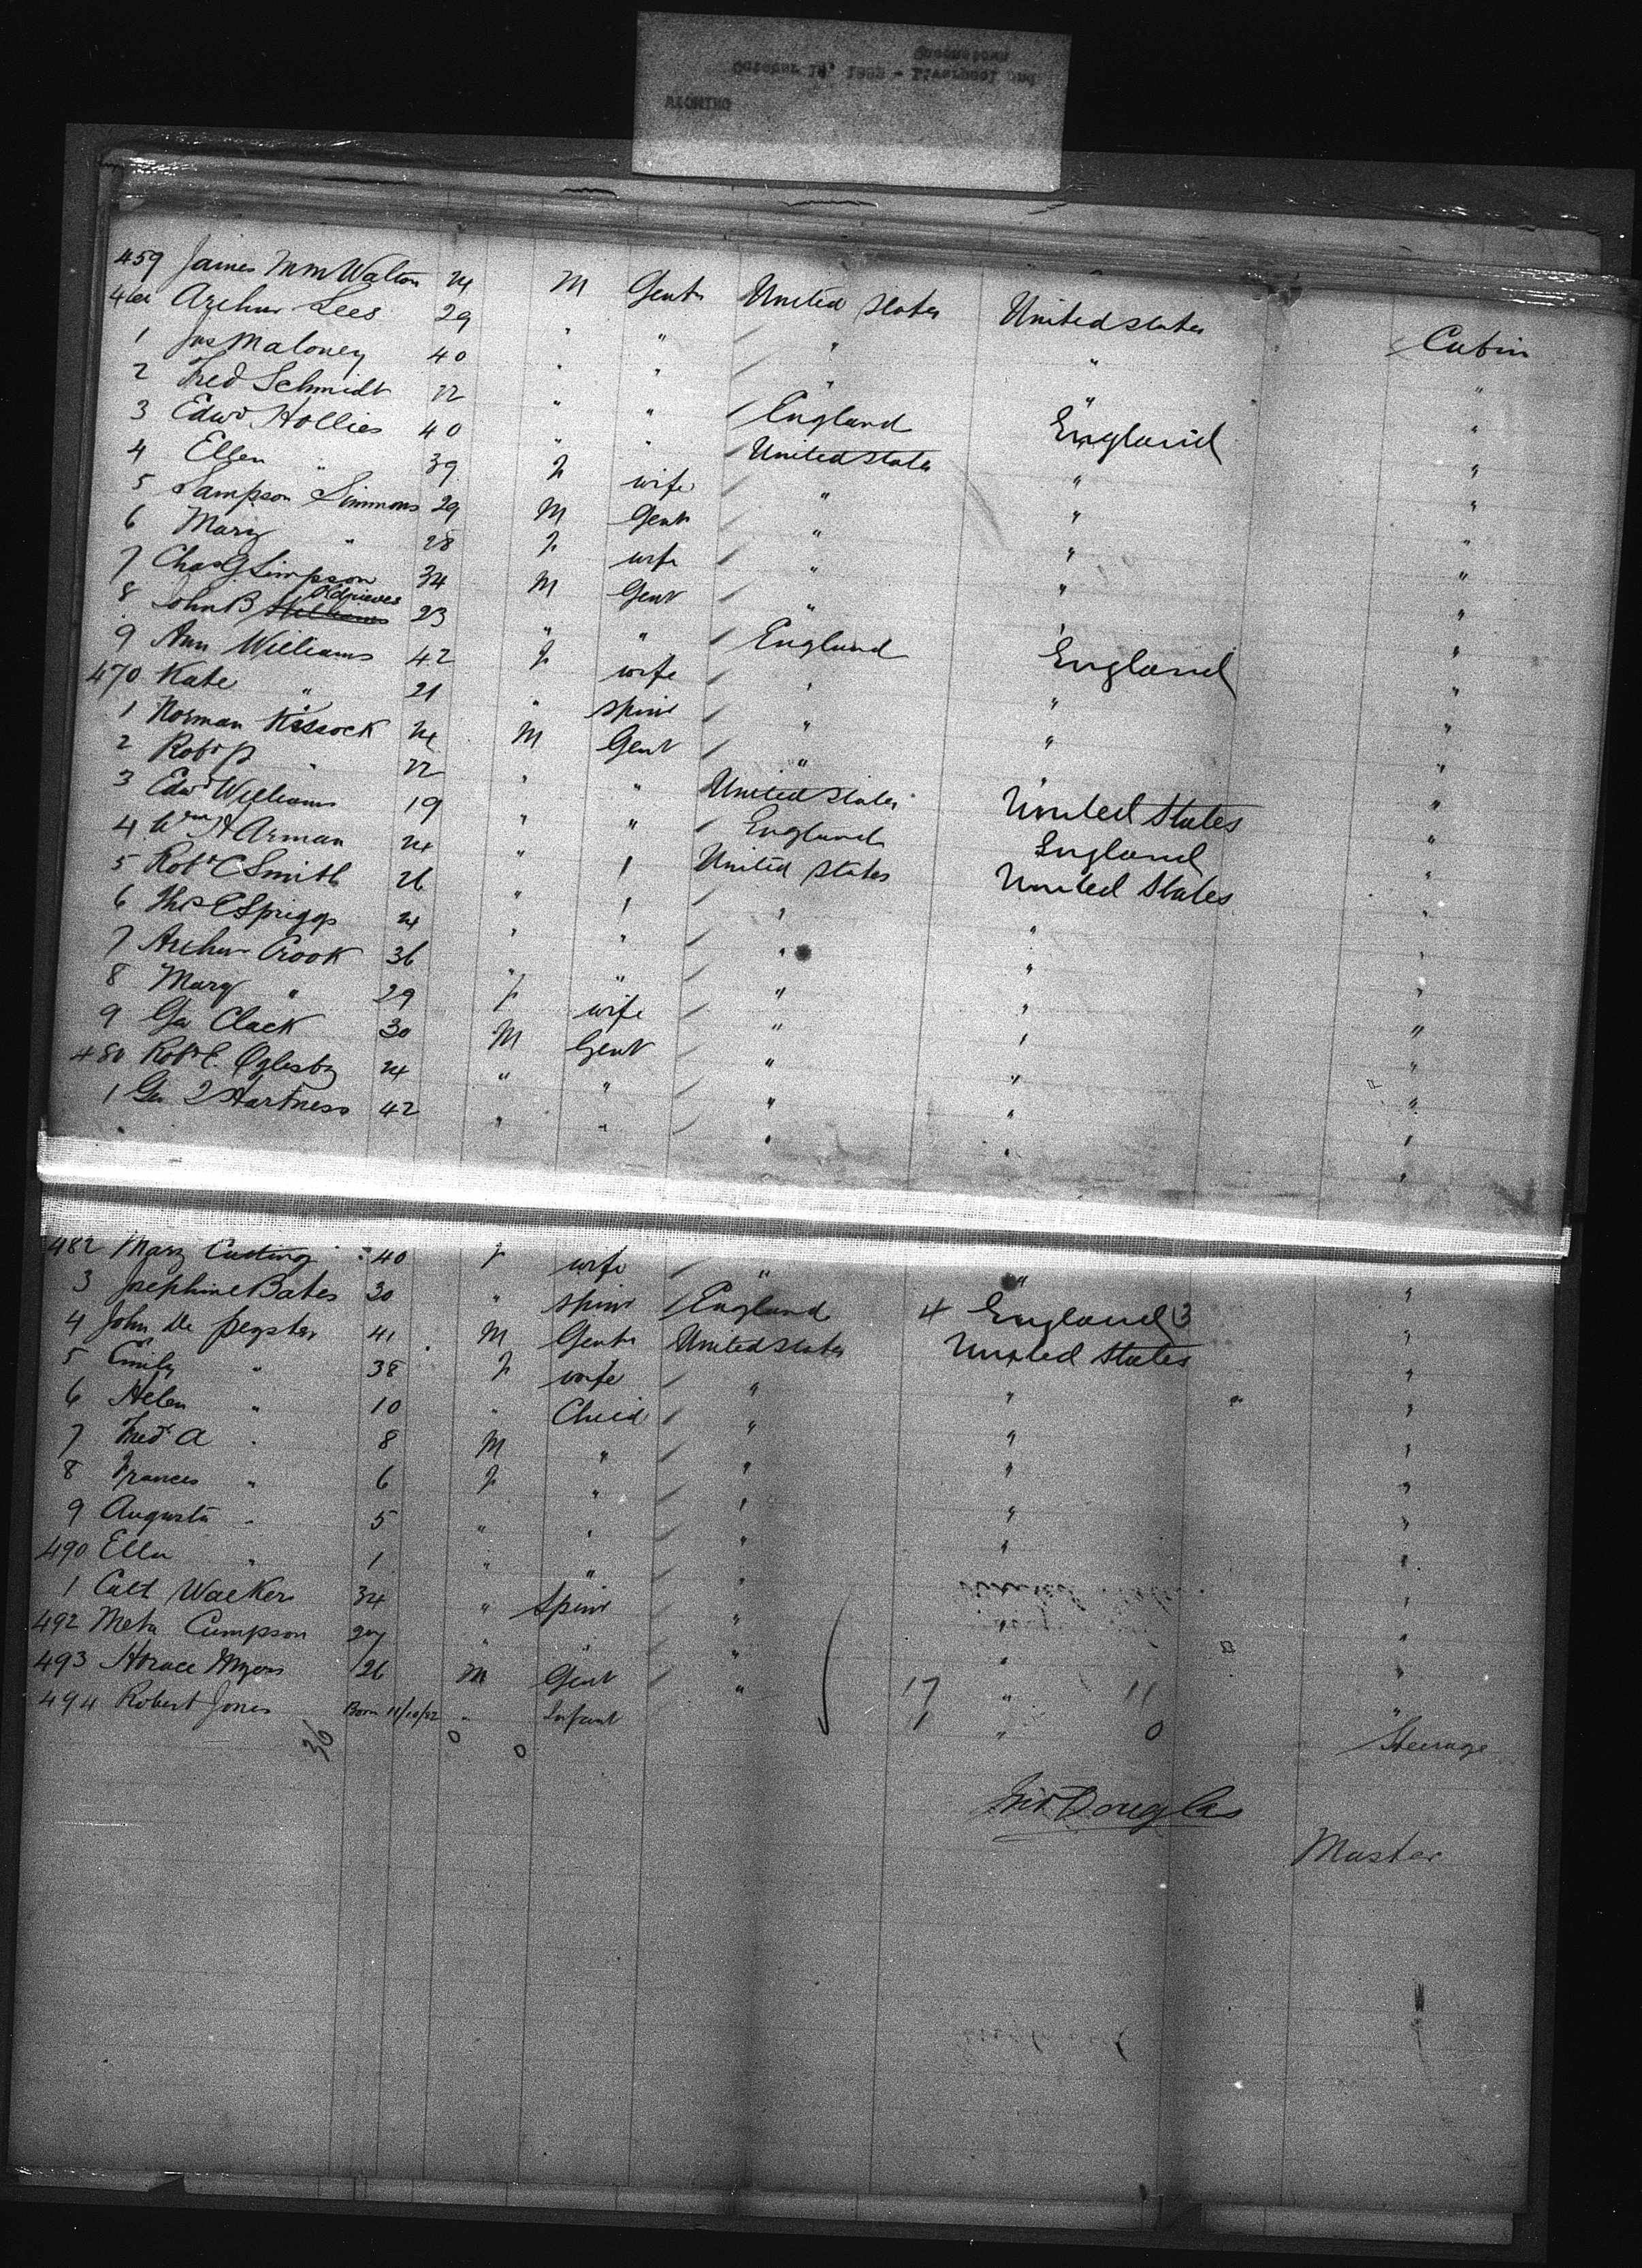 Queenstown
October 14, 1882 - Liverpool and
WYOMING
459 James Mm Walton 24 M Gent United States United States Cabin
460 Arthur Lees 29 " " " " "
1 Jas Maloney 40 " " " " "
2 Fred Schmidt 22 " " England England "
3 Edwd Hollies 40 " " United States " "
4 Ellen " 39 F wife " " "
5 Sampson Simmons 29 M Gent " " "
6 Mary " 28 F wife " " "
7 Chas G Simpson 34 M Gent " " "
8 John B Oldrieves 23 " " England England "
9 Ann Williams 42 F wife " " "
470 Kate " 21 " Spinr " " "
1 Norman Kissock 24 M Gent " " "
2 Robt P " 22 " " United States United States "
3 Edwd Williams 19 " " England England "
4 Wm H Arman 24 " " United States United States "
5 Robt C Smith 26 " " " " "
6 Ths C Spriggs 24 " " " " "
7 Arthur Crook 36 " " " " "
8 Mary " 29 F wife " " "
9 Geo Clack 30 M Gent " " "
480 Robt E. Oglesby 24 " " " " "
1 Geo Hartness 42 " " " " "
482 Mary Cutting 40 F wife " " "
3 Josephine Bates 30 " Spinr England 4 England 3 "
4 John De Peyster 41 M Gent United States United States "
5 Emily " 38 F wife " " "
6 Helen " 10 " Child " " "
7 Fred A " 8 M " " " "
8 Frances " 6 F " " " "
9 Augusta " 5 " " " " "
490 Ella " 1 " " " "
1 Walker 34 " Spinr " " "
492 Meta Cumpson " " " " "
493 Horace Myers 26 M Gent " 17 " 11 "
494 Robert Jones Born 11/10/82 " Infant 1 " 0 Steerage
36 0 0
Douglas
Master